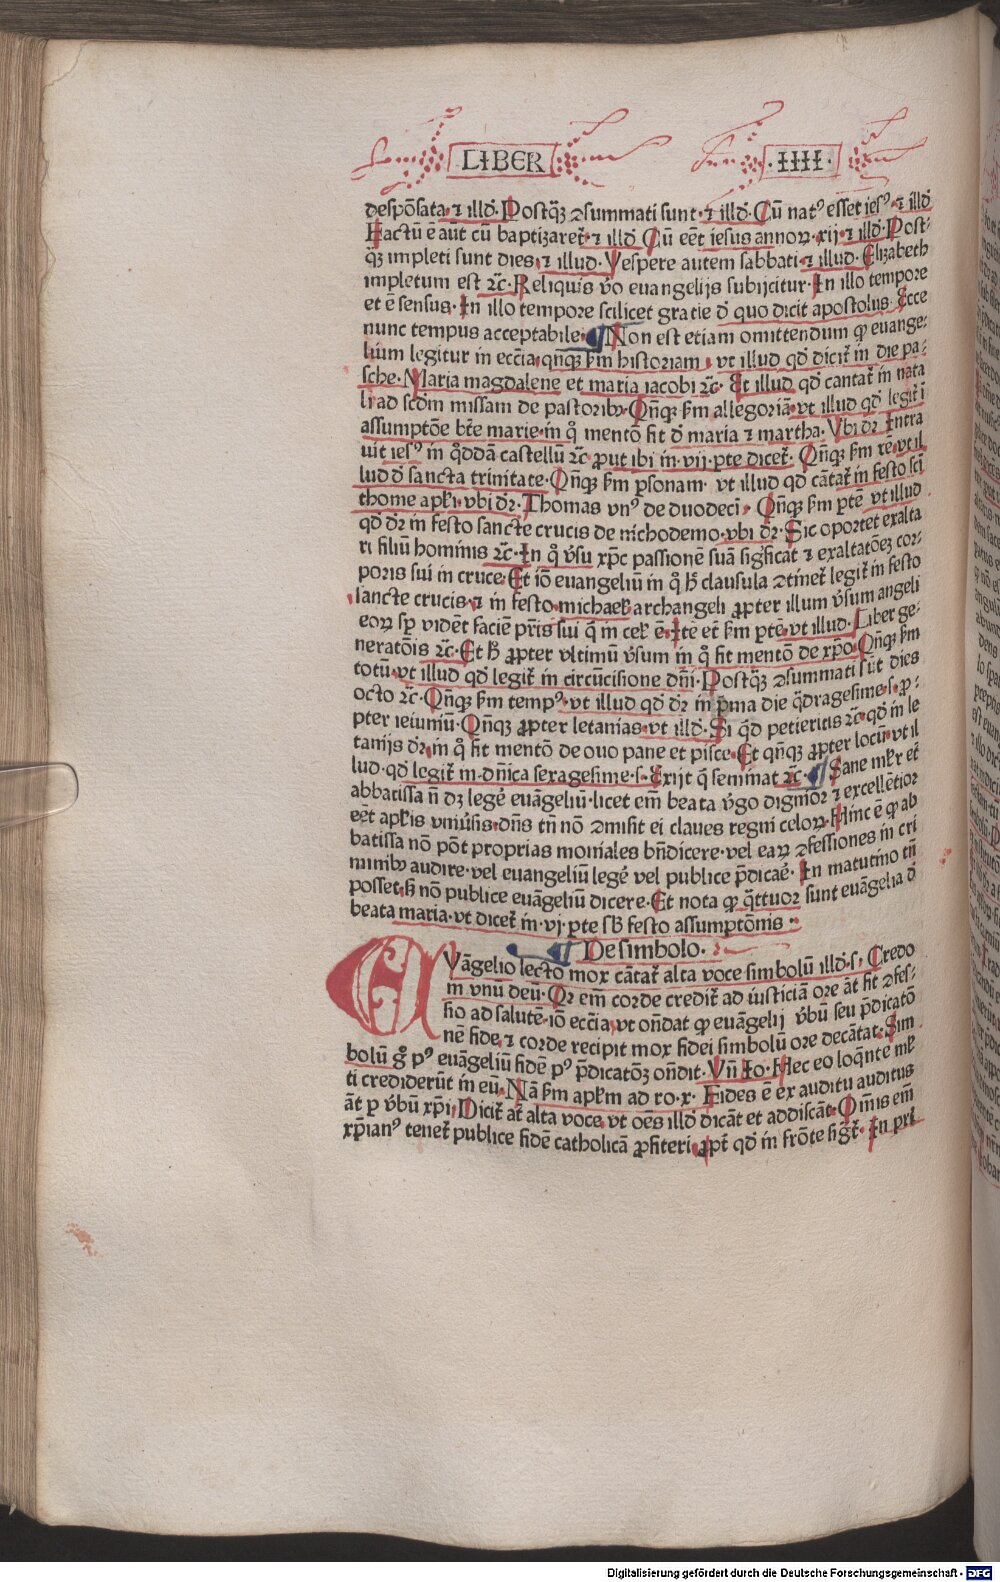 LIBER ·IIII·
despōsata· ⁊ illđ· Postq̄ꝫ ↄsummati sunt· ⁊ illđ· Cū natꝰ esset iesꝰ· ⁊ illđ
Factū ē aūt cū baptizaret᷑· ⁊ illđ Cū eēt iesus annoꝝ· xij· ⁊ illđ· Post⸗
q̄ꝫ impleti sunt dies· ⁊ illud· Vespere autem sabbati· ⁊ illud· Elizabeth
impletum est ⁊c̄· Reliquis v̄o euangelijs subijcitur· In illo tempore
et ē sensus· In illo tempore scilicet gratie đ quo dicit apostolus· Ecce
nunc tempus acceptabile· ¶ Non est etiam omittendum ꝙ euange⸗
lium legitur in ecc̄ia· qn̄qꝫ ẜm historiam· vt illud qđ dicit᷑ in die pa⸗
sche· Maria magdalene et maria iacobi ⁊c̄· Et illud qđ cantat᷑ in nata
li ad scđm missam de pastoribꝰ· Qn̄qꝫ ẜm allegoriā· vt illud qđ legit᷑ ī
assumptōe bt̄e marie· in q̊ mentō fit đ maria ⁊ martha· Vbi dr̄ Intra
uit iesꝰ in q̊ddā castellū ⁊c̄ ꝓut ibi in· vij· ꝑte dicet᷑· Qn̄qꝫ ẜm rē· vt il
lud đ sancta trinitate· Qn̄qꝫ ẜm ꝑsonam· vt illud qđ cātat᷑ in festo sc̄i
thome apƚi· vbi dr̄· Thomas vnꝰ de duodecī· Qn̄qꝫ ẜm ꝑtē vt illud
qđ dr̄ in festo sancte crucis de nichodemo· vbi dr̄· Sic oportet exalta
ri filiū hominis ⁊c̄· In q̊ v̄su xp̄c passionē suā sigficat ⁊ exaltatōeꝫ cor⸗
poris sui in cruce· Et iō euangeliū in q̊ ħ clausula ↄtinet᷑ legit᷑ in festo
sancte crucis· ⁊ in festo michaeƚ archangeli ꝓpter illum v̄sum angeli
eoꝝ sꝑ vidēt faciē pr̄is sui q̄ in celꝭ ē· Ite et᷑ ẜm ꝑtē· vt illud· Liber ge⸗
neratōis ⁊c̄· Et ħ ꝓpter vltimū v̄sum in q̊ fit mentō de xp̄o· Qn̄qꝫ ẜm
totū· vt illud qđ legit᷑ in circūcisione dn̄i· Postq̄ꝫ ↄsummati sūt dies
octo ⁊c̄· Qn̄qꝫ ẜm tempꝰ· vt illud qđ dr̄ in p̄ma die q̄dragesime· s· ꝓ⸗
pter ieiuniū· Qn̄qꝫ ꝓpter letanias· vt illđ· Si q̄d petieritis ⁊c̄ qđ in le
tanijs dr̄· in q̊ fit mentō de ouo pane et pisce· Et qn̄qꝫ ꝓpter locū· vt il
lud· qđ legit᷑ in dn̄ica sexagesime· s· Exijt q̄ seminat ⁊c̄· ¶ Sane mƚr et
abbatissa n̄ dꝫ legē euāgeliū· licet em̄ beata v̄go dignior ⁊ excellētior
eēt apƚis vniūsis· dn̄s tn̄ nō ↄmisit ei claues regni celoꝝ· Hinc ē ꝙ ab
batissa nō pōt proprias moniales bn̄dicere· vel eaꝝ ↄfessiones in cri
minibꝰ audire· vel euangeliū legē vel publice p̄dicaē· In matutino tn̄
posset· ẜ nō publice euāgeliū dicere· Et nota ꝙ q̄ttuor sunt euāgelia đ
beata maria· vt dicet᷑ in· vj· ꝑte sƀ festo assumptōnis··
¶ De simbolo·
EVāgelio lecto mox cātat᷑ alta voce simbolū illđ· s· Credo
in vnū deū· Qꝛ em̄ corde credit᷑ ad iusticiā ore āt fit ↄfes⸗
sio ad salutē· iō ecc̄ia· vt on̄dat ꝙ euāgelij v̄bū seu p̄dicatō
nē fide· ⁊ corde recipit mox fidei simbolū ore decātat· Sim
bolū g̊ pꝰ euāgeliū fidē pꝰ p̄dicatōꝫ on̄dit· Vn̄ Io· Hec eo loq̄nte mƚ
ti crediderūt in eū· Nā ẜm apƚm ad ro· x· Fides ē ex auditu auditus
āt ꝑ v̄bū xp̄i· Dicit᷑ āt alta voce· vt oēs illđ dicāt et addiscāt· Om̄is em̄
xp̄ianꝰ tenet᷑ publice fidē catholicā ꝓfiteri· ꝓpt᷑ qđ in frōte sigt᷑· In pri
Digitalisierung gefördert durch die Deutsche Forschungsgemeinschaft - DFG